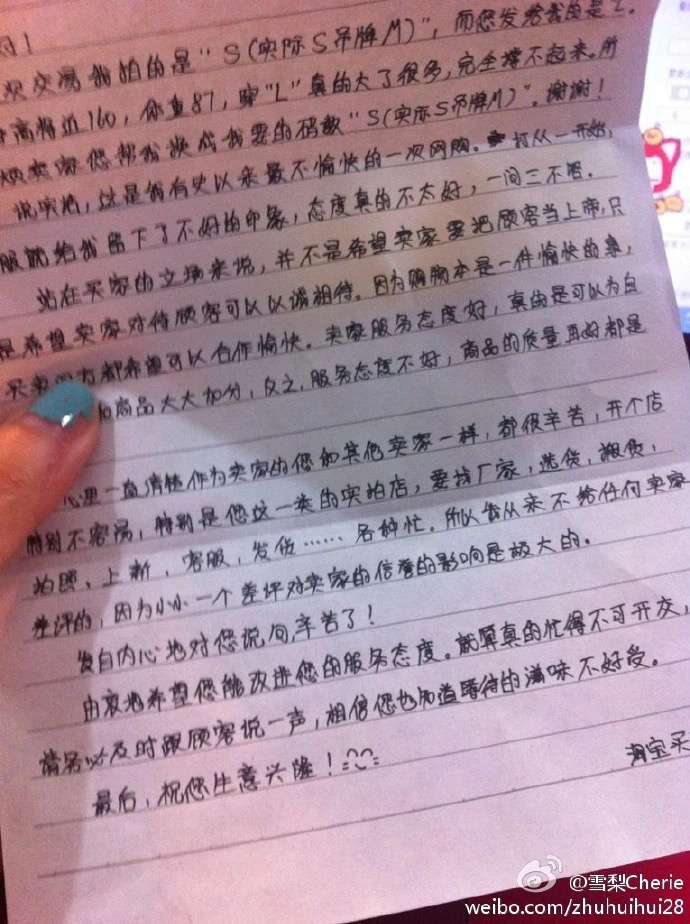 次交易我拍的是“S(实际S吊牌M)”，而您发给我的是L.
高将近160，体重87，穿“L”真的大了很多,完全撑不起来.所
烦卖家您帮我换成我要的码数“S(实际S吊牌M)”.谢谢！
说实话，这是我有史以来最不愉快的一次网购。打从一开始，
服就给我留下了不好的印象，态度真的不太好，一问三不答.
站在买家的立场来说，并不是希望卖家要把顾客当上帝,只
是希望卖家对待顾客可以以诚相待。因为购物本是一件愉快的事，
买卖双方都希望可以合作愉快。卖家服务态度好，真的是可以为自
商品大大加分，反之,服务态度不好，商品的质量再好都是
心里一直清楚作为卖家的您和其他卖家一样，都很辛苦，开个店
特别不容易，特别是您这一类的实拍店，要找厂家，选货，搬货，
拍照、上新，客服，发货……各种忙。所以我从来不给任何卖家
差评的，因为小小一个差评对卖家的信誉的影响是极大的。
发自内心地对您说句,辛苦了！
由衷地希望您能改进您的服务态度。就算真的忙得不可开交，
请务必及时跟顾客说一声，相信您也知道等待的滋味不好受。
最后，祝您生意兴隆！
淘宝买
@雪梨Cherie
weibo.com/zhuhuihui28